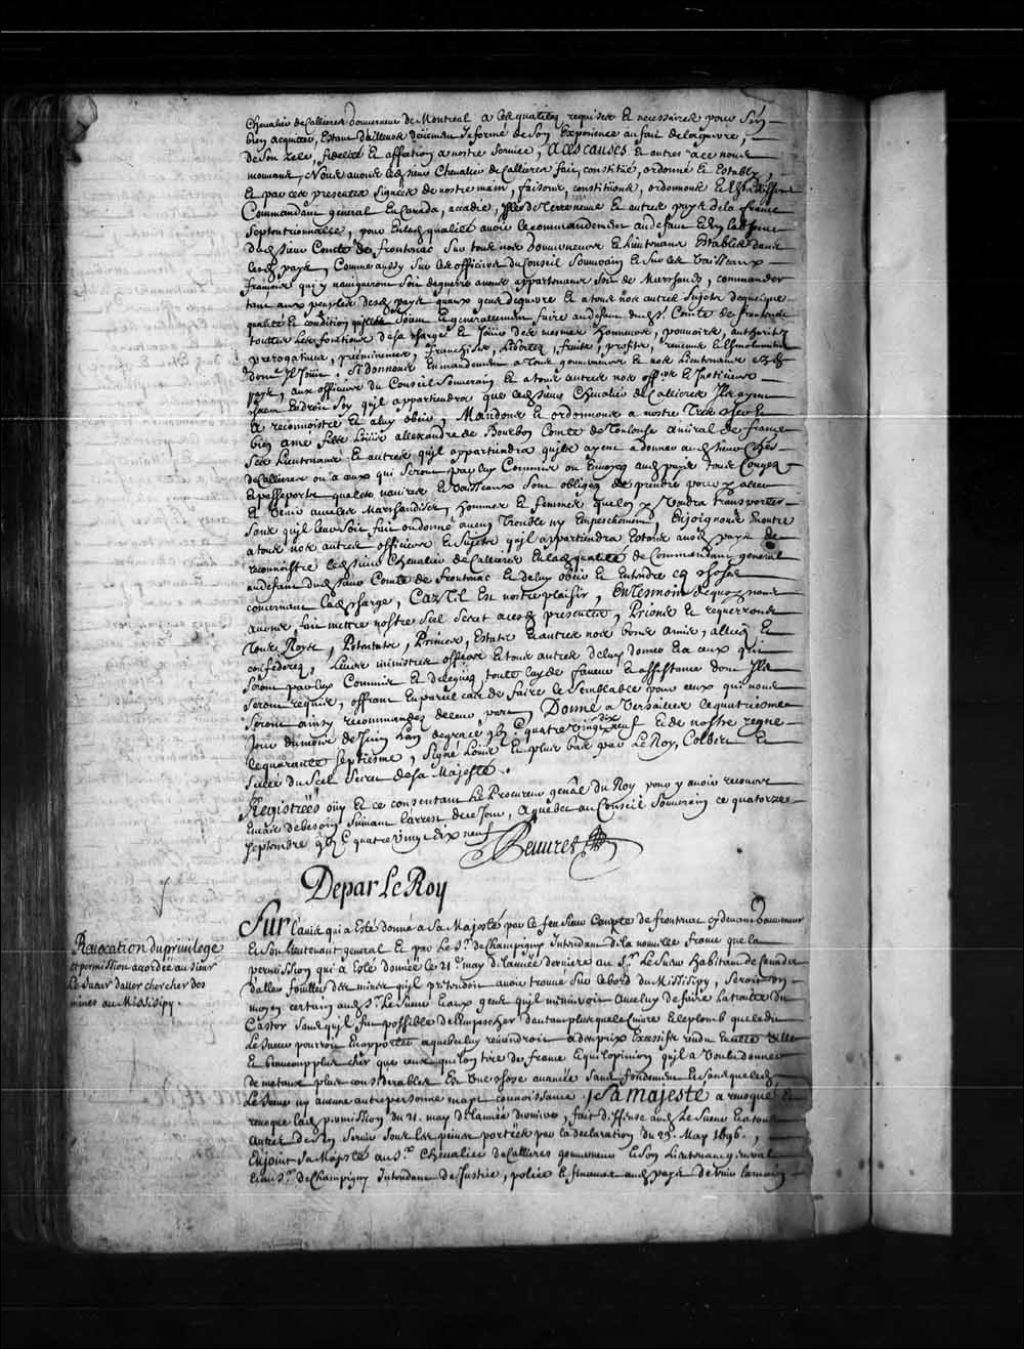 Chevalier de Callieres Gouverneur de Montreal a les qualitez requises et necessaires pour s'en
bien acquitter, Estant d'ailleurs deuëment Informé de son Experience au fait de la guerre,
de son zele, fidelité et affection a nostre service, A ces causes et autres a ce nous
mouuans, Nous auons led. sieur Chevalier de Callieres fait, constitué, ordonné et Estably,
et par ces presentes signées de nostre main, faisons, constituons, ordonnons et Establissons
Commandant general En Canada, accadie, Isles de Terreneuve et autres pays de la france
Septentrionnalle, pour En lad. qualité auoir le commandement au defaut et En l'absence
dud. sieur Comte de frontenac sur tous nos Gouverneurs et Lieutenans Establis dans
lesd. pays, Comme aussy sur les officiers du Conseil Souverain et sur les Vaisseaux
françois qui y nauigueront soit de guerre a nous appartenans soit de Marchands, commander
tant aux peuples desd. pays qu'aux gens de guerre et a tous nos autres Sujets de quelque
qualité et condition qu'ils soient et generallement faire au defaut dud. s.r Comte de frontenac
touttes les fonctions de sa charge et Jouir des mesmes honneurs, pouvoirs, authoritez
prerogatiues, préeminences, franchises, Libertez, fruits, profits, reuenus et Esmolumens
dont Il Jouit. Si donnons En mandement a Tous gouverneurs et nos Lieutenans Esd.
pays, aux officiers du Conseil Souverain et a tous autres nos off.ers et Justiciers
chacun Endroit soy qu'il appartiendra que led. sieur Chevalier de Callieres Ils ayent
a reconnoistre et a luy obéir, Mandons et ordonnons a nostre Tres cher et
bien amé fils Louis allexandre de Bourbon Comte de Toulouse amiral de france
ses Lieutenans et autres qu'il appartiendra qu'ils ayent a donner aud. sieur Chev.er
de Callieres ou a ceux qui seront par luy Commis ou Enuoyez aud. pays tous Congez
et passeports que les navires et Vaisseaux sont obligez de prendre pour y aller
et Venir auec les Marchandises, hommes et femmes que l'on y Voudra transporter
sans qu'il leur soit fait ou donné aucun Trouble ny Empeschement, Enjoignons En outre
a tous nos autres officiers et Sujets qu'il appartiendra Estans aud. pays de
reconnoistre led. sieur Chevalier de Callieres En lad. qualité de Commandant general
au defaut dud. sieur Comte de frontenac et de luy obéir et Entendre Es choses
concernant lad. charge, Car Tel Est nostre plaisir, En Tesmoin de quoy nous
auons fait mettre nostre Scel Secret a ces presentes, Prions et requerrons
Tous Roys, Potentats, Princes, Estats et autres nos bons amis, alliez et
confederez, Leurs ministres officiers et tous autres de luy donner et a ceux qui
seront par luy Commis et deleguez toute layde faueur et assistance dont Ils
seront requis, offrant En pareil cas de faire le semblable pour ceux qui nous
seront ainsy recommandez de leur part, Donné a Versailles le quatriesme
Jour du mois de Juin L'an de grace gbj.c quatre vingt dix neuf et de nostre regne
le quarante septiesme, Signé Louis et plus bas par Le Roy, Colbert et
Scellé du Scel Secret de sa Majesté.
Registrées oüy et ce consentant Le Procureur genãl du Roy pour y auoir recours
En cas de besoin, suiuant l'arrest de ce Jour, A quebec au Conseil Souverain ce quatorze
septembre gbj.c quatre vingt dix neuf
Peuuret
De par Le Roy
Reuocation du priuilege
et permission acordée au sieur
Le Sueur d'aller chercher des
mines au Missisipy.
Sur L'auis qui a Esté donné a Sa Majesté par le feu sieur Compte de frontenac cy deuant Gouverneur
et son Lieutenant general et par Le S.r de Champigny Intendant de la nouvelle france que la
permission qui a Esté donnée le 21.e may de l'année derniere au S.r Le Sueur habitant de Canada
d'aller fouiller des mines qu'il pretendoit auoir trouué sur le bord du Missisipy, seroit un
moyen certain aud. S.r Le Sueur Et aux gens qu'il meneroit Auec luy de faire la traitte du
Castor sans qu'il fut possible de l'empescher d'autant plus que le Cuiure et le plomb que led.
Le Sueur pourroit En apporter a quebec luy reuiendroit a des prix Excessifs rendu En cette Ville
et beaucoup plus cher que ceux qu'on tire de france et que l'opinion qu'il a Voulu donner
de metaux plus considerables Est Une chose auancée sans fondement et sans que led.
Le Sueur ny aucune autre personne en ayt connoissance, Sa Majesté a reuoqué et
reuoque lad. permission du 21. may de l'année derniere, fait deffense aud. Le Sueur et a tous
autres de s'en seruir sous les peines portées par la declaration du 25. May 1696.,
Enjoint Sa Majesté au S.r Chevalier de Callieres gouuerneur et son Lieutenant general
et au S.r de Champigny Intendant de Justice, police et finances aud. pays de tenir la main